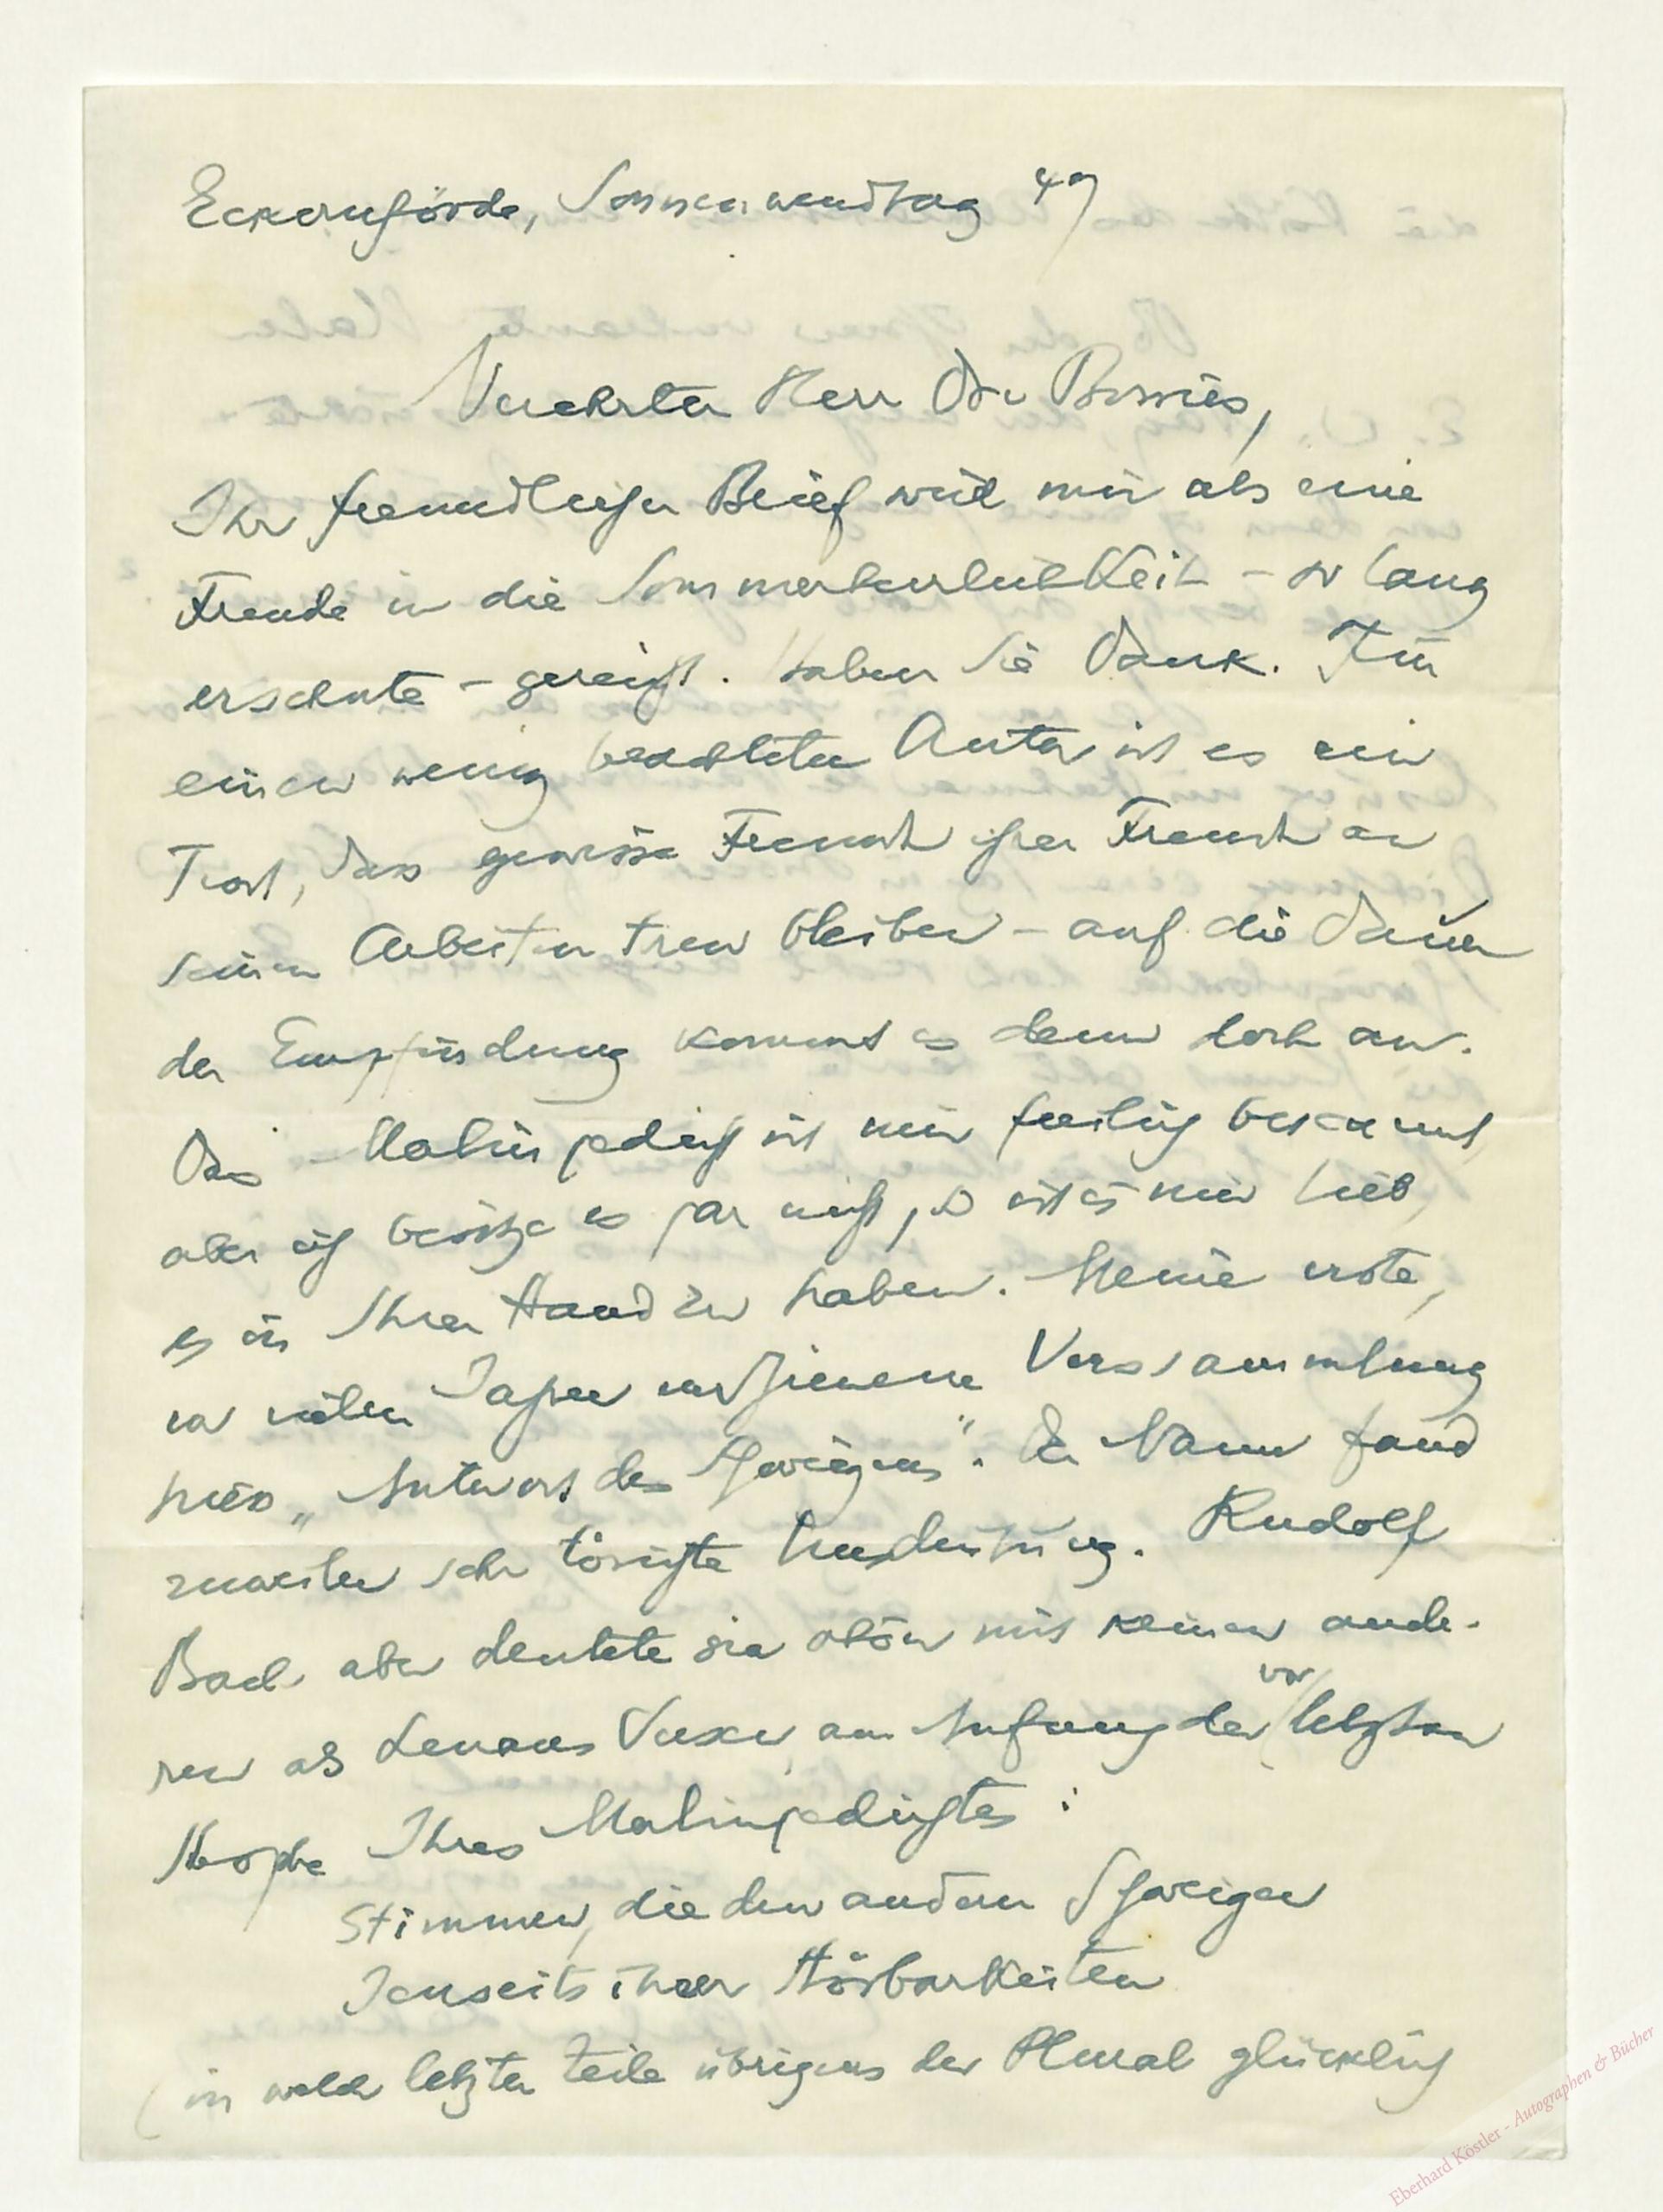 Eckernförde, Sonnenwendtag 49
Verehrter Herr Dr. Borries,
Ihr freundlicher Brief wird mir als eine
Freude in die Sommerherrlichkeit – so lang
ersehnte – gereicht. Haben Sie Dank. Für
einen wenig beachteten Autor ist es ein
Trost, dass gewisse Freunde ihrer Freude an
seinen Arbeiten treu bleiben – auf die Dauer
der Empfindung kommt es denn doch an.
Das Malingedicht ist mir freilich bekannt,
aber ich besitze es gar nicht, so ist es mir lieb,
es in Ihrer Hand zu haben. Meine erste,
vor vielen Jahren erschienene Verssammlung
hiess „Antwort des Schweigens“. Der Name fand
zuweilen sehr törichte Ausdeutung. Rudolf
Bach aber deutete sie schön mit keinen ande-
ren als Lenaus Versen am Anfang der vorletzten
Strophe Ihres Malingedichtes:
Stimmen, die den andern Schweigen
Jenseits ihrer Hörbarkeiten
(in welch letzter Zeile übrigens der Plural glücklich
Eberhard Köstler - Autographen & Bücher